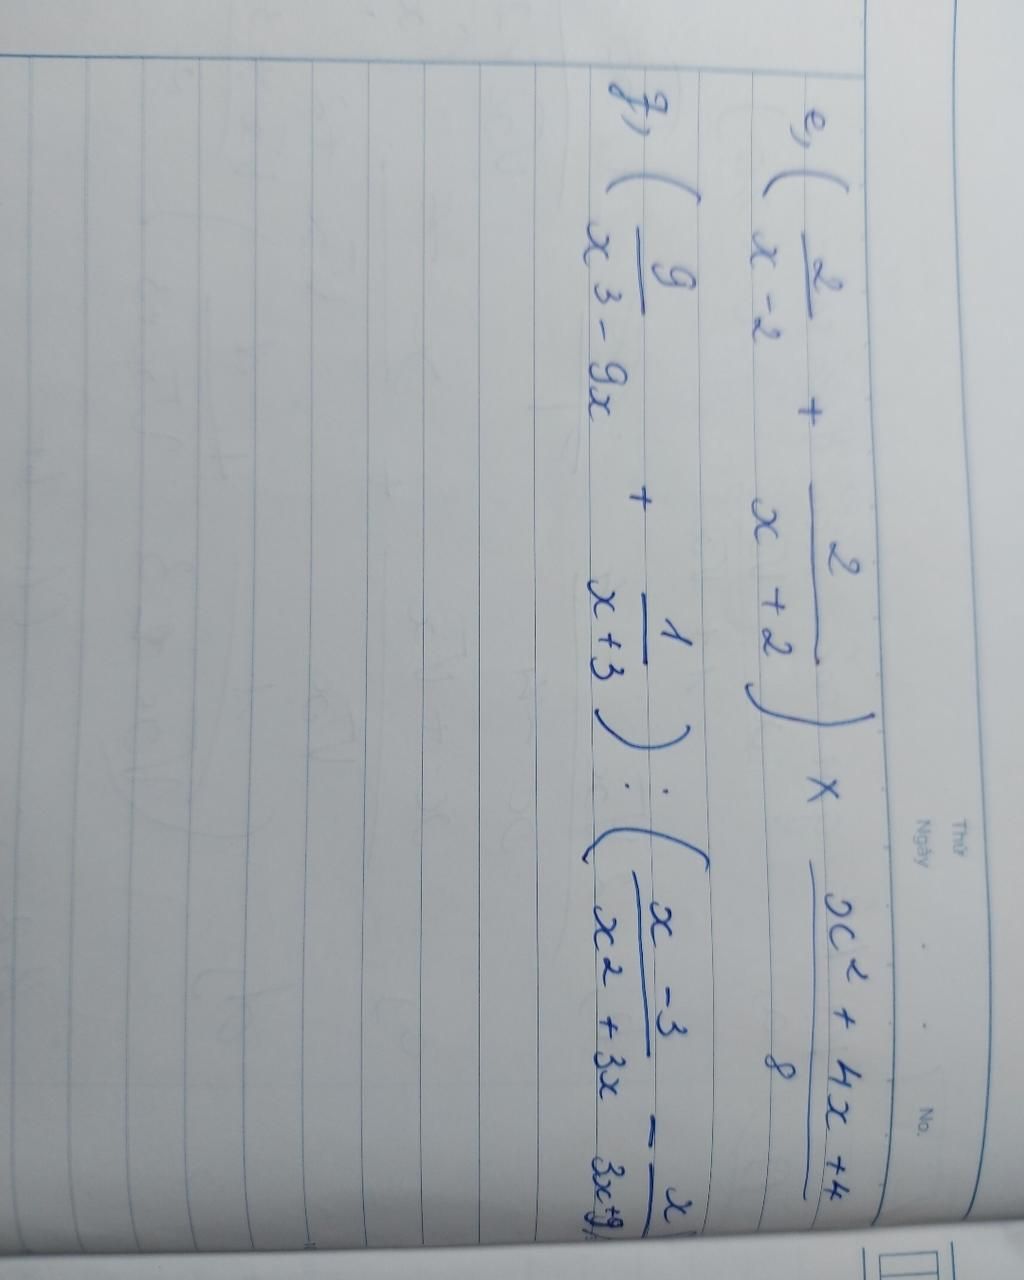 Thứ
Ngày . . No.
e, ( 2/(x - 2) + 2/(x + 2) ) x (x² + 4x + 4)/8
g, ( 9/(x3 - 9x) + 1/(x+3) ) : ( (x - 3)/(x2 + 3x) - x/(3x+9) )